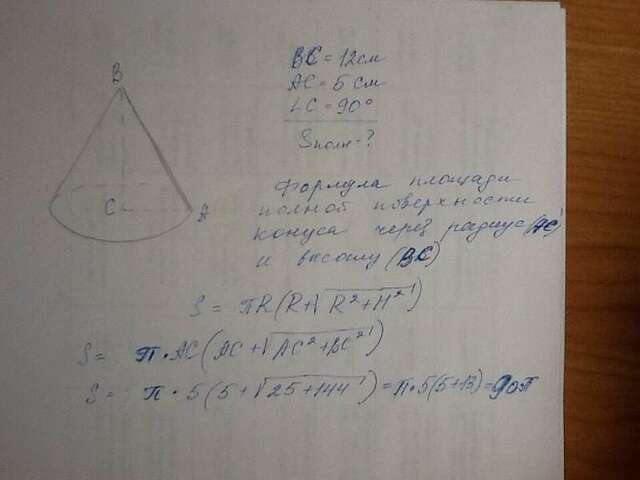 B
C
A
BC = 12 см
AC = 5 см
∠C = 90°
Sполн - ?
Формула площади
полной поверхности
конуса через радиус (AC)
и высоту (BC)
S = πR(R+√R²+H²)
S = π·AC(AC+√AC²+BC²)
S = π·5(5+√25+144) = π·5(5+13) = 90π